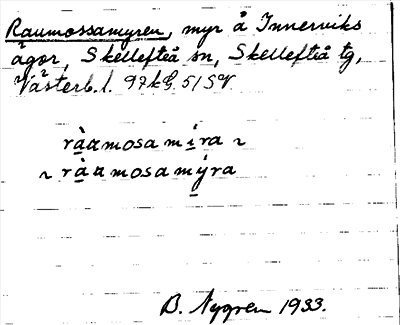 Raumossamyren, myr å Innerviks
ägor, Skellefteå sn, Skellefteå tg,
Västerb. l. 97kG. 5/SV.
rà̱amosamí̱ra ~
~ rà̱amosamý̱ra
B. Nygren 1933.